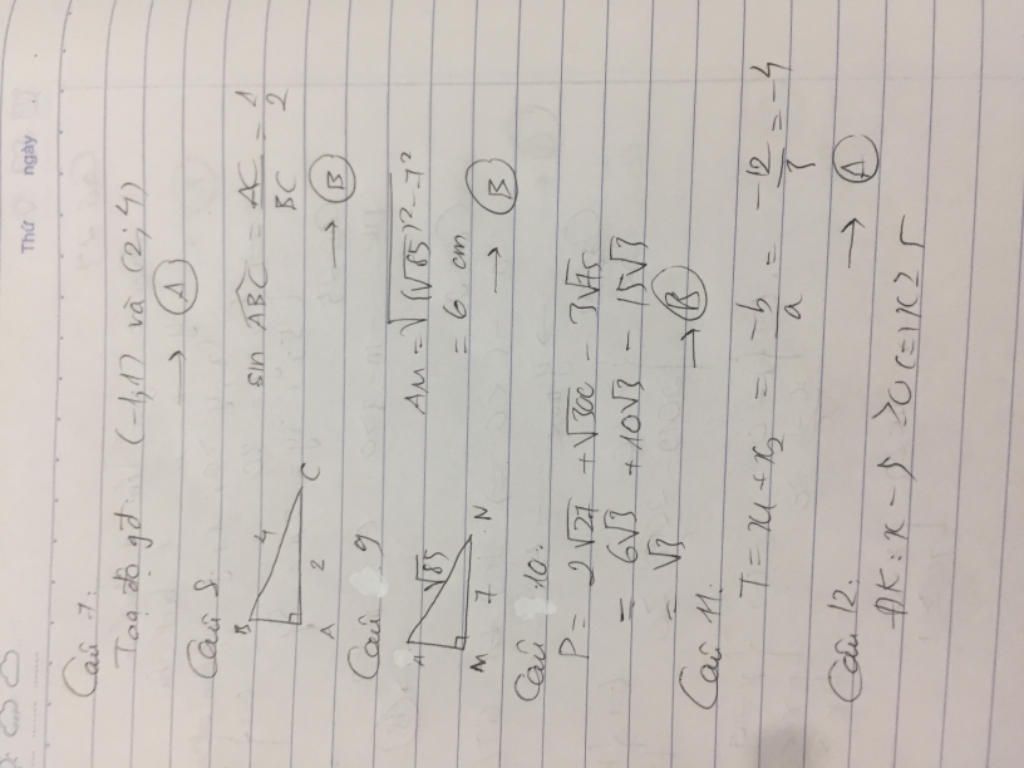 Thứ ngày
Câu 7:
Toạ độ gđ (-1;1) và (2;4)
→ A
Câu 8:
B
4
A 2 C
sin ABC = AC/BC = 1/2
→ B
Câu 9
A
√85
M 7 N
AM = √(√85)² - 7²
= 6 cm
→ B
Câu 10:
P = 2√27 + √300 - 3√75
= 6√3 + 10√3 - 15√3
= √3
→ B
Câu 11:
T = x1 + x2 = -b/a = -12/3 = -4
→ A
Câu 12:
ĐK: x - 5 ≥ 0 (=) x ≥ 5